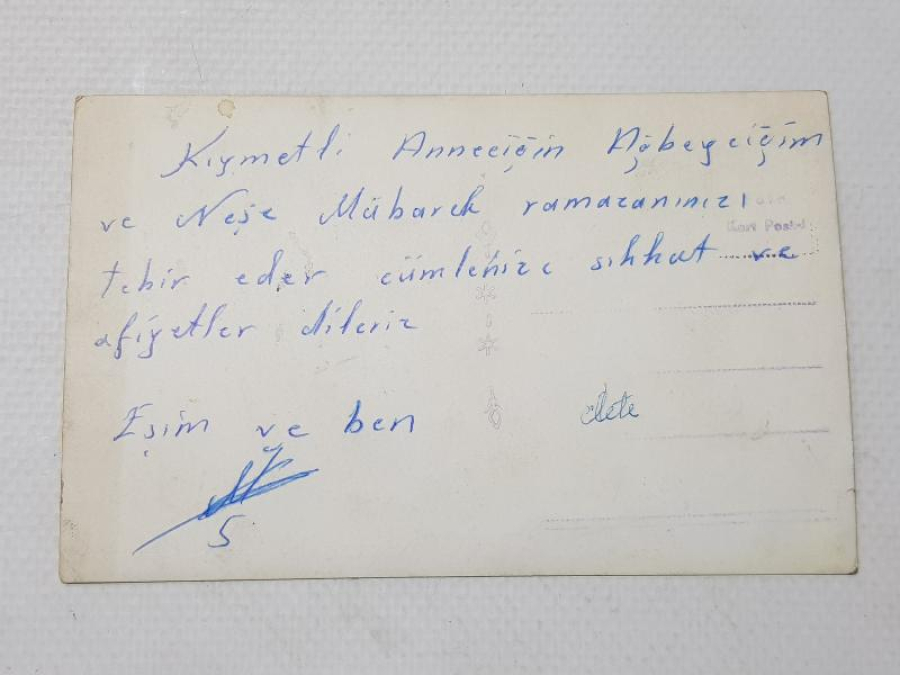 Kıymetli Anneciğim Ağbeyciğim
ve Neşe Mübarek ramazanınızı
Kart Postal
tebir eder cümlenize sıhhat ve
afiyetler dileriz
Eşim ve ben